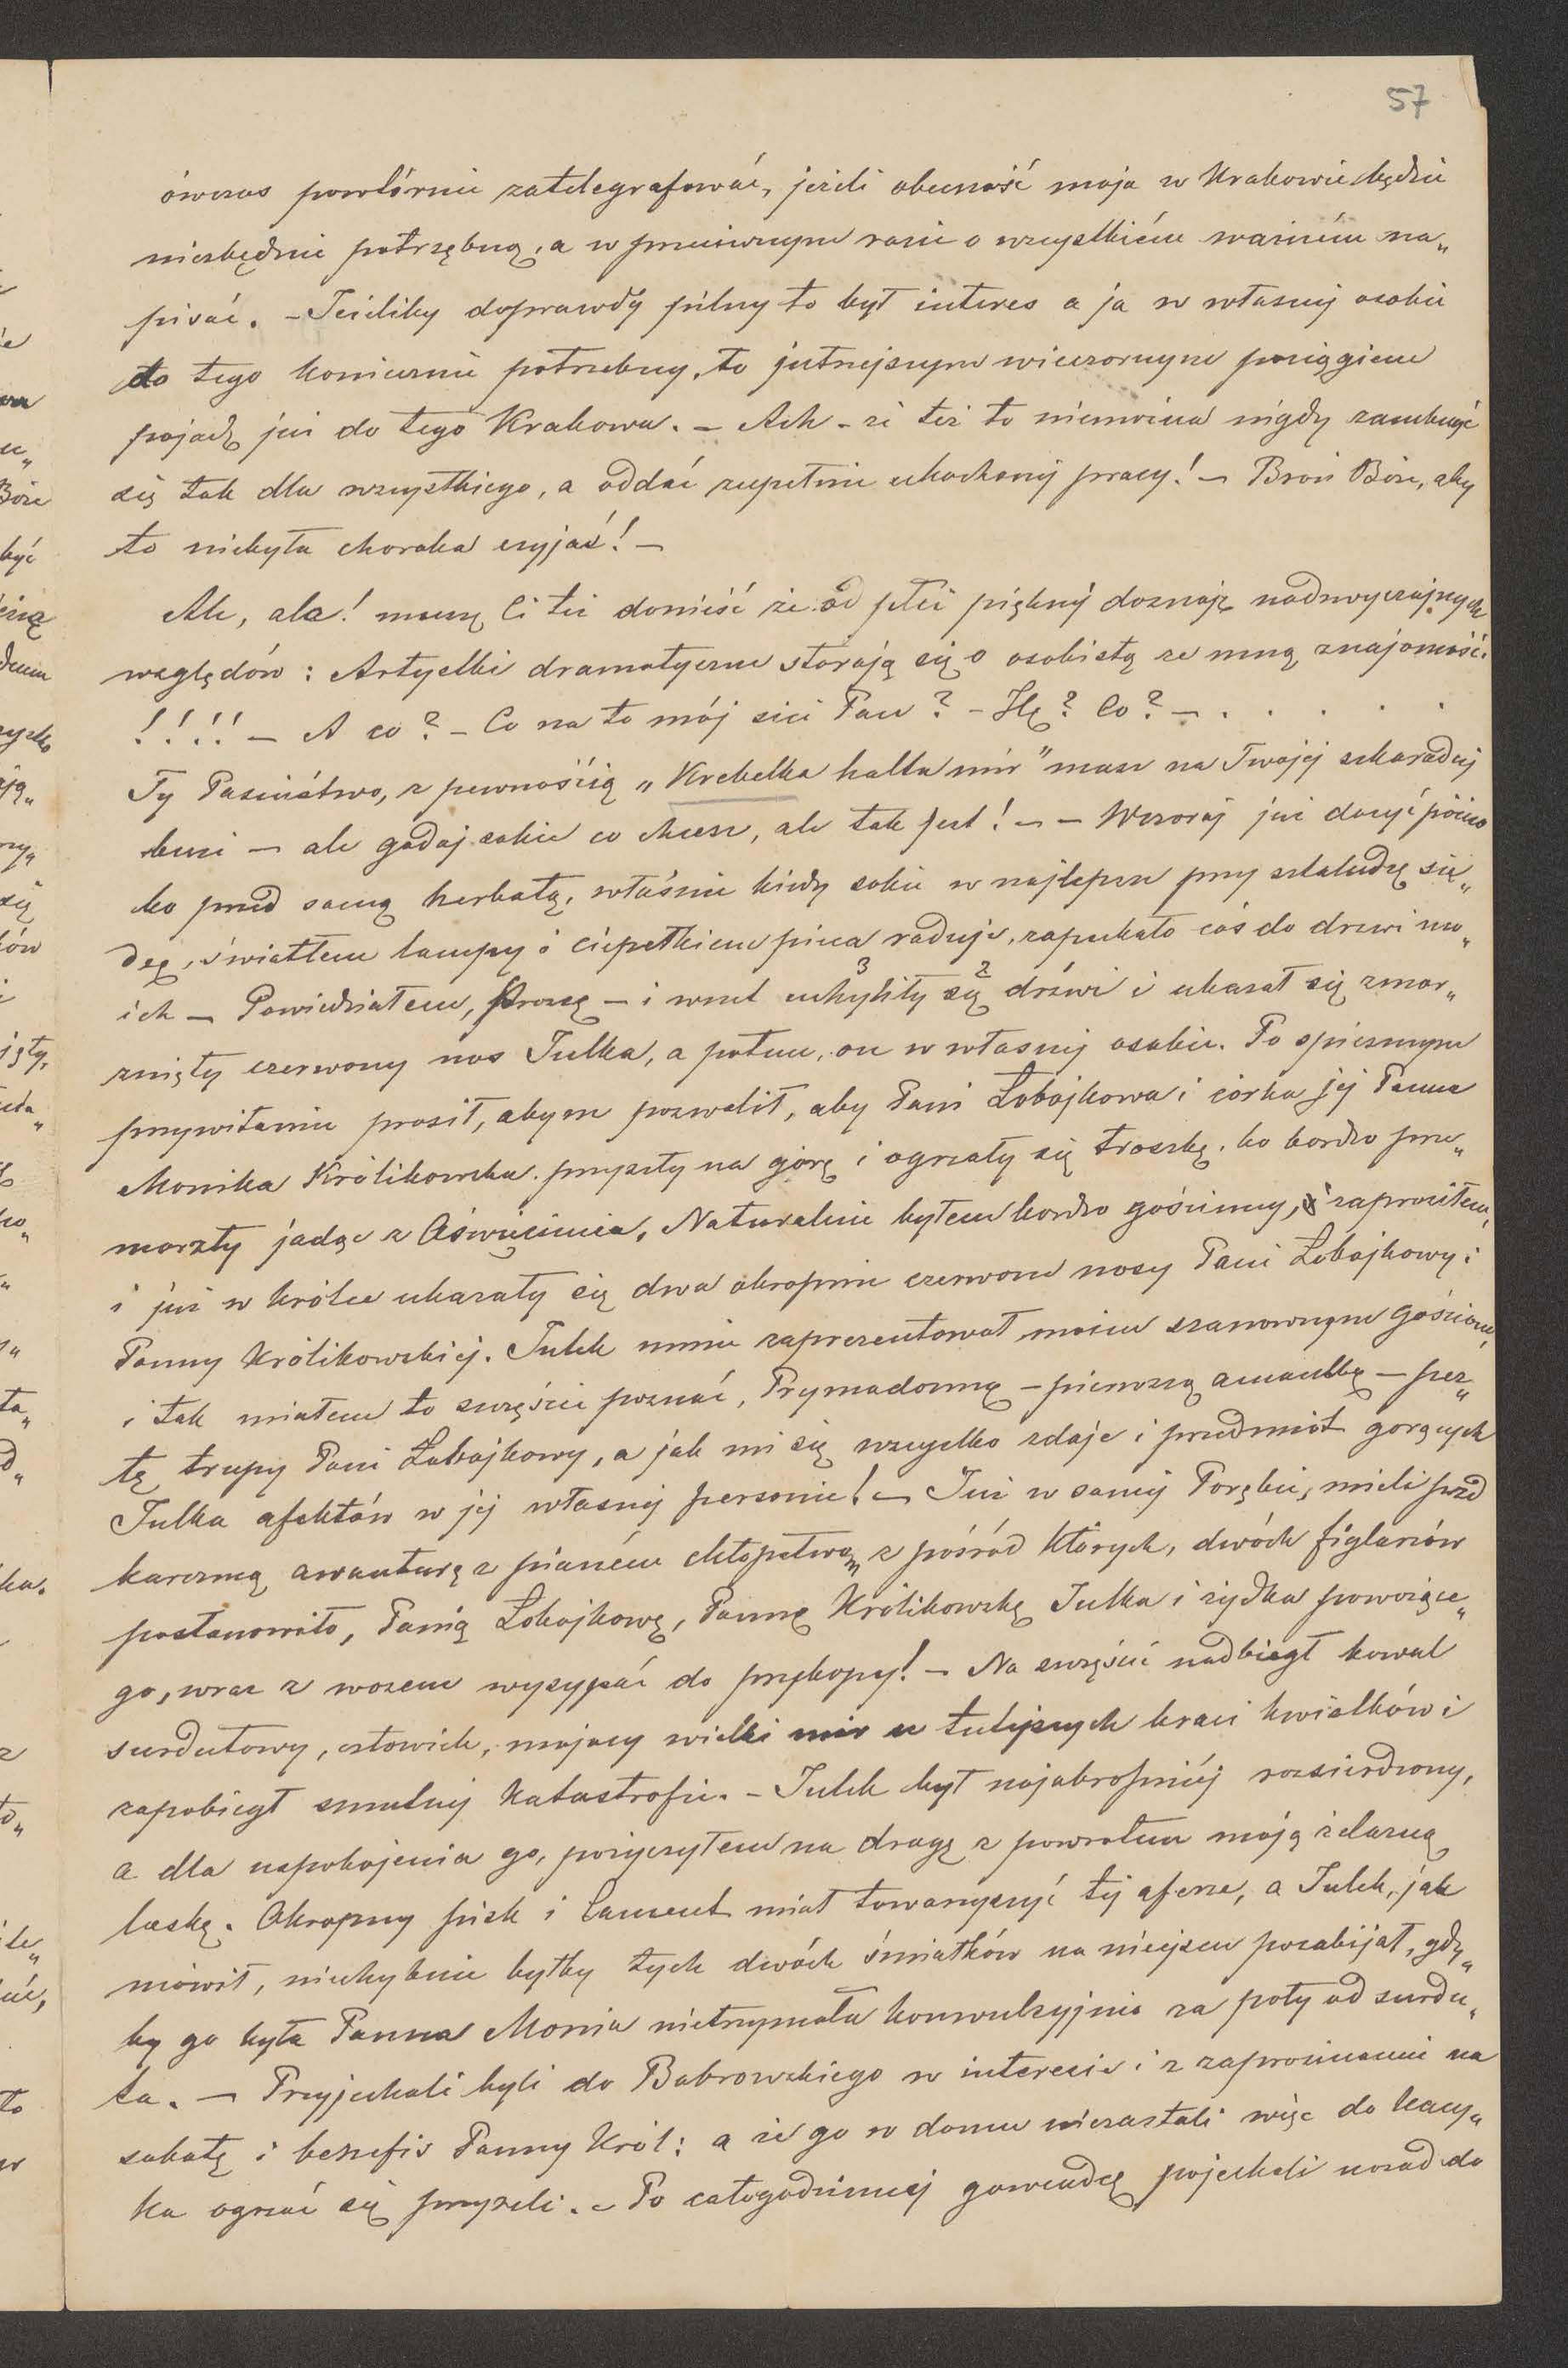 57
ówczas powtórnie zatelegrafować, jeżeli obecność moja w Krakowie będzie
niezbędnie potrzębną, a w przeciwnym razie o wszystkiém ważném na„
pisać. – Jeżeliby doprawdy pilny to był interes a ja w własnéj osobie
do tego koniecznie potrzebny, to jutrzejszym wieczornym pociągiem
pojadę już do tego Krakowa. – Ach – że też to niemożna nigdy zamknąć
się tak dla wszystkiego, a oddać zupełnie ukochanéj pracy! – Broń Boże, aby
to niebyła choroba czyjaś! –
Ale, ale! muszę Ci też donieść że od płci pięknéj doznaję nadzwyczajnych
względów: Artystki dramatyczne starają się o osobistą ze mną znajomość.
!!!! – A co? – Co na to mój sici Pan? – Hę? Co? – . . . . . .
Ty Pasiństwo, z pewnością „Krebelka halta mir" masz na Twojéj szkaradnéj
buzi – ale gadaj sobie co chcesz, ale tak jest! – – Wczoraj już dosyć późno
bo przed samą herbatą, właśnie kiedy sobie w najlepsze przy sztaludze sie„
dzę, światłem lampy i ciepełkiem pieca raduję, zapukało coś do drzwi mo„
ich – Powiedziałem, proszę – i wnet uchyliły 3 się 2 drzwi i ukazał się zmar„
znięty czerwony nos Julka, a potem, on w własnéj osobie. Po śpiesznym
przywitaniu prosił, abym pozwolił, aby Pani Łobojkowa i córka jéj Panna
Monika Królikowska przyszły na górę i ogrzały się troszkę, bo bardzo prze„
marzły jadąc z Oświęcimia. Naturalnie byłem bardzo gościnny, i zaprosiłem,
i już w krótce ukazały się dwa okropnie czerwone nosy Pani Łobojkowy i
Panny Królikowskiéj. Julek mnie zaprezentował moim szanownym gościom,
i tak miałem to szczęście poznać, Prymadonnę – pierwszą amantkę – perz„
tę trupy Pani Łobojkowy, a jak mi się wszystko zdaje i przedmiot gorących
Julka afektów w jéj własnéj personie! – Już w saméj Porębie, mieli przed
karczmą awanturę z pianém chłopstwem, z pośród których, dwóch figlarzów
postanowiło, Panią Łobojkowę, Pannę Królikowskę Julka i żydka powożące„
go, wraz z wozem wysypać do przykopy! – Na szczęście nadbiegł kowal
surdutowy, człowiek, mający wielki mir u tutejszych braci kwiatków i
zapobiegł smutnéj katastrofie. – Julek był najokropniéj rozsierdzony,
a dla uspokojenia go, pożyczyłem na drogę z powrotem moją żelazną
laskę. Okropny pisk i lament miał towarzyszyć téj aferze, a Julek, jak
mówił, niechybnie byłby tych dwóch śmiałków na miejscu pozabijał, gdy„
by go była Panna Monia nietrzymała konwulsyjnie za poły od surdu„
ta. – Przyjechali byli do Bobrowskiego w interesie i z zaproszeniem na
sobotę i benefis Panny Król: a że go w domu niezastali więc do
ka ogrzać się przyszli. – Po całogodzinnéj gawędce pojechali nazad do